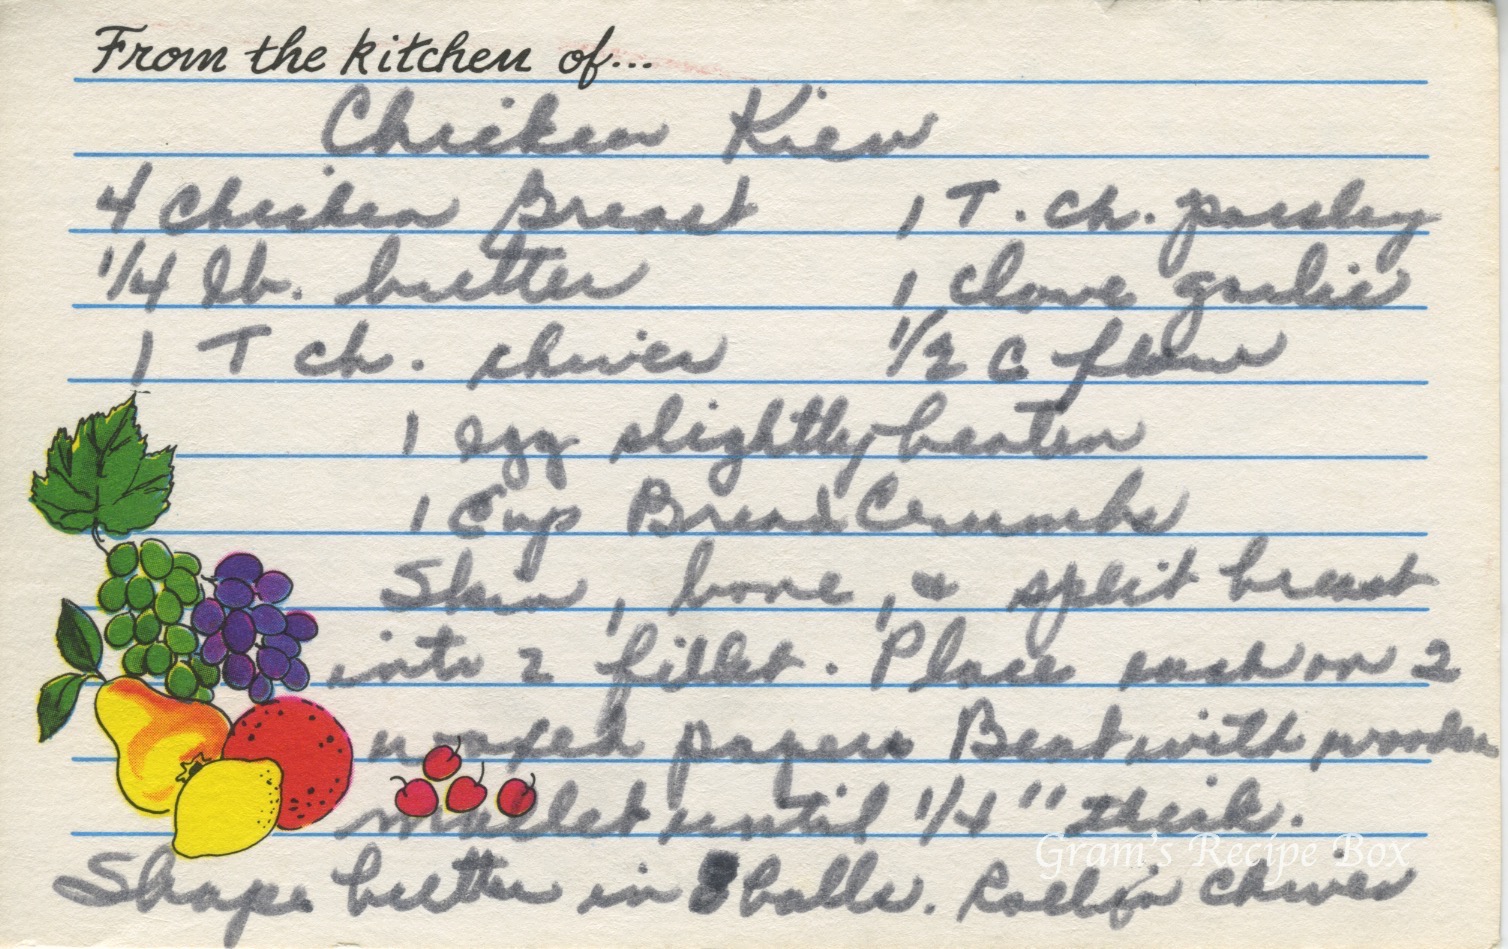 From the kitchen of...
Chicken Kiev
4 Chicken Breast 1 T. ch. parsley
1/4 lb. butter 1 clove garlic
1 T ch. chives 1/2 C flour
1 egg slightly beaten
1 Cup Bread Crumbs
Skin, bone, & split breast
into 2 fillet. Place each on 2
waxed papers Beat with wooden
mallet until 1/4" thick.
Gram's Recipe Box
Shape butter in balls. Roll in chives